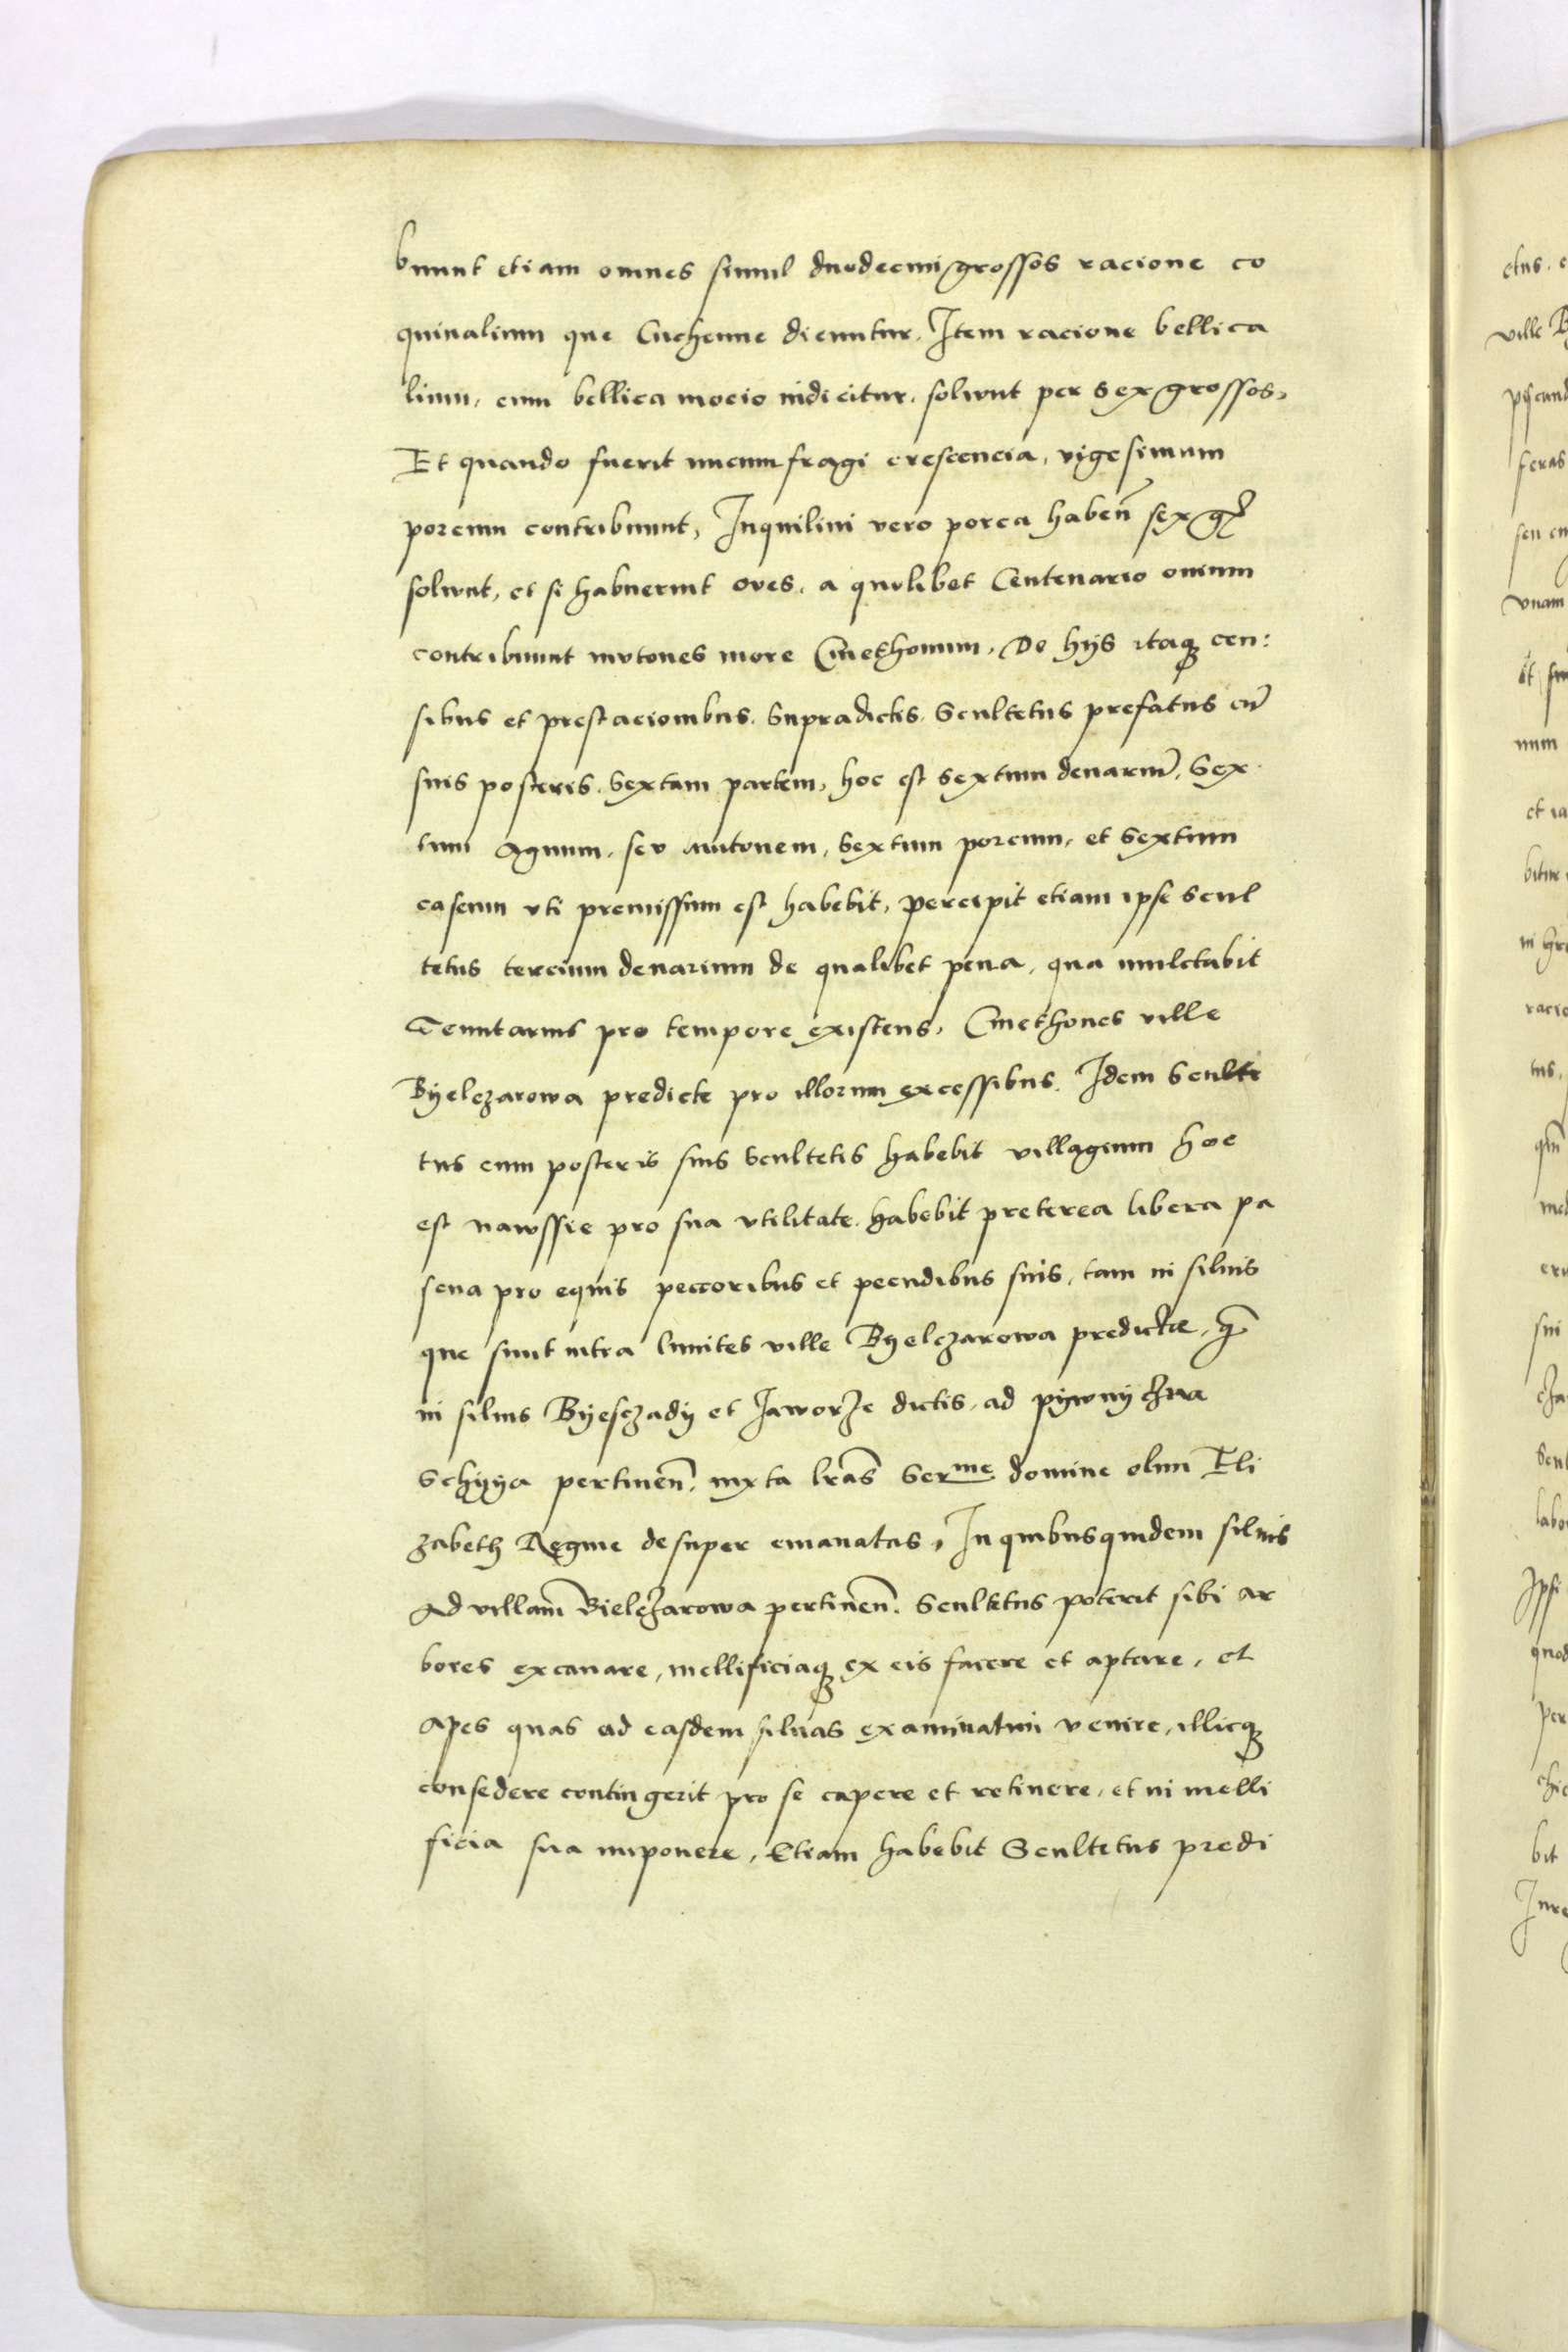 buunt etiam omnes simul duodecim grossos racione co
quinalium que Cuchenne dicuntur. Item racione bellica
lium, cum bellica mocio indicitur. soluut per sex grossos,
Et quando fuerit nucum fragi crescencia, vigesimum
porcum contribuunt, Inquilini vero porca haben̄ sex gr̄
soluut, et si habuerint oves. a quolibet Centenario ouium
contribuunt mutones more Cmethonum. De hijs itaq₃ cen:
sibus et prestacionibus. Supradictis. Scultetus prefatus cu̅
suis posteris. Sextam partem, hoc est sextum denariu̅, Sex
tum Agnum. seu mutonem, Sextum porcum, et Sextum
caseum vti premissum est habebit, percipit etiam ipse Scul
tetus tercium denarium de qualibet pena, qua mulctabit
Tenutarius pro tempore existens, Cmethones ville
Byelczarowa predicte pro illorum excessibus. Idem Sculte
tus cum posteris suis Scultetis habebit villagium hoc
est nawssie pro sua vtilitate. habebit preterea libera pa
scua pro equis peccoribus et pecudibus suis, tam in siluis
que sunt intra limites ville Byelczarowa predictæ, q̄
in siluis Byesczady et Jaworze dictis, ad pywnyczna
Schyya pertinen̄. iuxta lr̅as Serme domine olim Eli
zabeth Regine desuper emanatas, In quibusquidem siluis
Ad villam̅ Bielczarowa pertinen̄. Scultetus poterit sibi ar
bores excauare, mellificiaq₃ ex eis facere et aptare, et
Apes quas ad easdem siluas examinatim venire, illicq₃
consedere contingerit pro se capere et retinere, et in melli
ficia sua imponere, Etiam habebit Scultetus predi